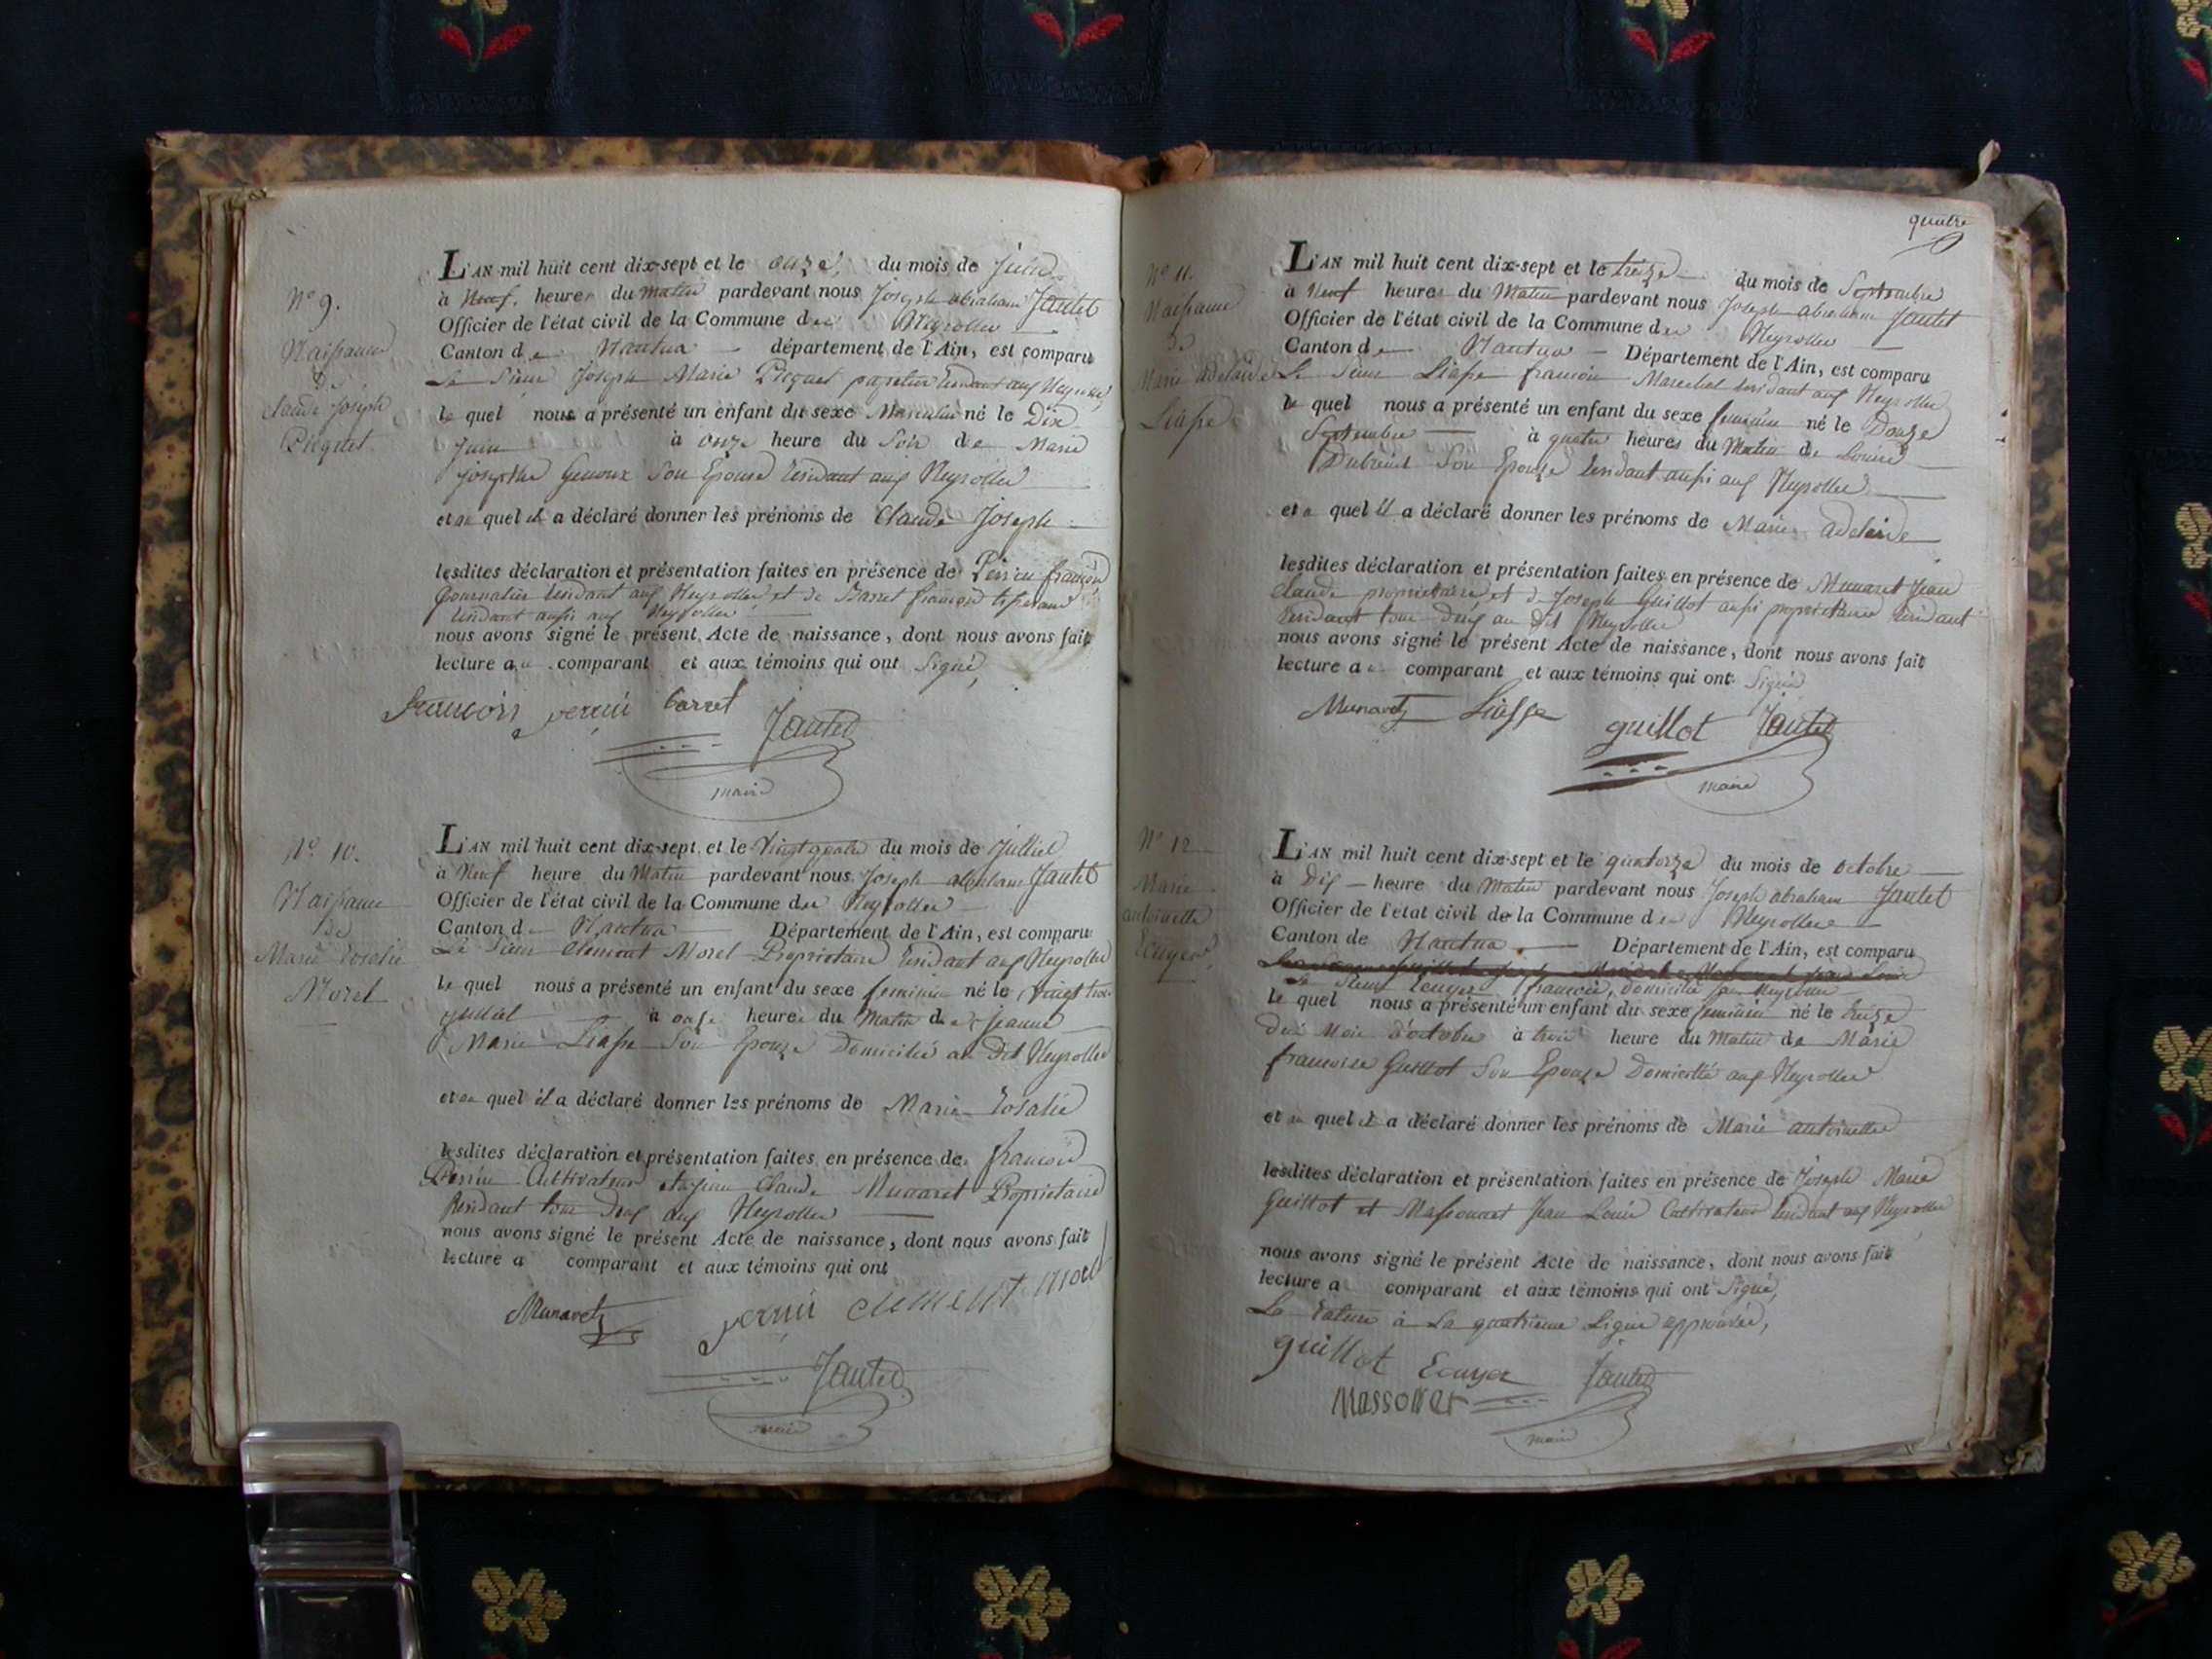 N° 9.
Naissance
de
Claude Joseph
Picquet
L'AN mil huit cent dix-sept et le onze du mois de juin
à Neuf heures du matin pardevant nous Joseph abraham Jantet
Officier de l'état civil de la Commune des Neyrolles
Canton de Nantua département de l'Ain, est comparu
Le Sieur Joseph Marie Picquet papetier Residant aux Neyrolles
le quel nous a présenté un enfant du sexe Masculin né le Dix
Juin à onze heure du Soir de Marie
josephte Genoux Son Epouse Residant aux Neyrolles
et au quel il a déclaré donner les prénoms de Claude Joseph
lesdites déclaration et présentation faites en présence de Perrin françois
Journalier Residant aux Neyrolles et de Barret françois tisserand
Residant aussi aux Neyrolles
nous avons signé le présent Acte de naissance, dont nous avons fait
lecture au comparant et aux témoins qui ont Signé,
francois perrin barret Jantet
maire
N° 10.
Naissance
de
Marie Rosalie
Morel
L'AN mil huit cent dix-sept et le Vingt quatre du mois de Juillet
à Neuf heure du Matin pardevant nous Joseph abraham Jantet
Officier de l'état civil de la Commune des Neyrolles
Canton de Nantua Département de l'Ain, est comparu
Le Sieur Clement Morel Proprietaire Residant aux Neyrolles
le quel nous a présenté un enfant du sexe feminin né le Vingt trois
juillet à onze heures du Matin de Jeanne
Marie Liasse Son Epouze Domicilié au Dit Neyrolles
et au quel il a déclaré donner les prénoms de Marie Rosalie
lesdites déclaration et présentation faites en présence de françois
Perrin Cultivateur et Jean Claude Munaret Proprietaire
Residant tous Deux aux Neyrolles
nous avons signé le présent Acte de naissance, dont nous avons fait
lecture a comparant et aux témoins qui ont
Munaret perrin clement morel
Jantet
maire
quatre
N° 11.
Naissance
de
Marie Adelaide
Liasse
L'AN mil huit cent dix-sept et le treize du mois de Septembre
à Neuf heures du Matin pardevant nous Joseph abraham Jantet
Officier de l'état civil de la Commune des Neyrolles
Canton de Nantua Département de l'Ain, est comparu
Le Sieur Liasse francois Marechal Residant aux Neyrolles
le quel nous a présenté un enfant du sexe feminin né le Douze
Septembre à quatre heures du Matin de Louise
Dubreuil Son Epouze Residant aussi aux Neyrolles
et a quel il a déclaré donner les prénoms de Marie adelaide
lesdites déclaration et présentation faites en présence de Munaret Jean
Claude proprietaire et de Joseph Guillot aussi proprietaire Residant
Residant tous Deux au Dit Neyrolles
nous avons signé le présent Acte de naissance, dont nous avons fait
lecture au comparant et aux témoins qui ont Signé
Munaret Liasse guillot Jantet
maire
N° 12
Marie
antoinette
Ecuyer
L'AN mil huit cent dix-sept et le quatorze du mois de octobre
à Dix heure du Matin pardevant nous Joseph abraham Jantet
Officier de l'état civil de la Commune des Neyrolles
Canton de Nantua Département de l'Ain, est comparu
Le Sieur Ecuyer francois, domicilié aux Neyrolles
le quel nous a présenté un enfant du sexe feminin né le treize
du Mois D'octobre à trois heure du Matin de Marie
francoise Guillot Son Epouze Domicilié aux Neyrolles
et au quel il a déclaré donner les prénoms de Marie antoinette
lesdites déclaration et présentation faites en présence de Joseph Marie
Guillot et Massonnet Jean Louis Cultivateurs Residant aux Neyrolles
nous avons signé le présent Acte de naissance, dont nous avons fait
lecture a comparant et aux témoins qui ont Signé,
La Rature à La quatrieme Ligne approuvée,
guillot Ecuyer Jantet
Massonet
maire